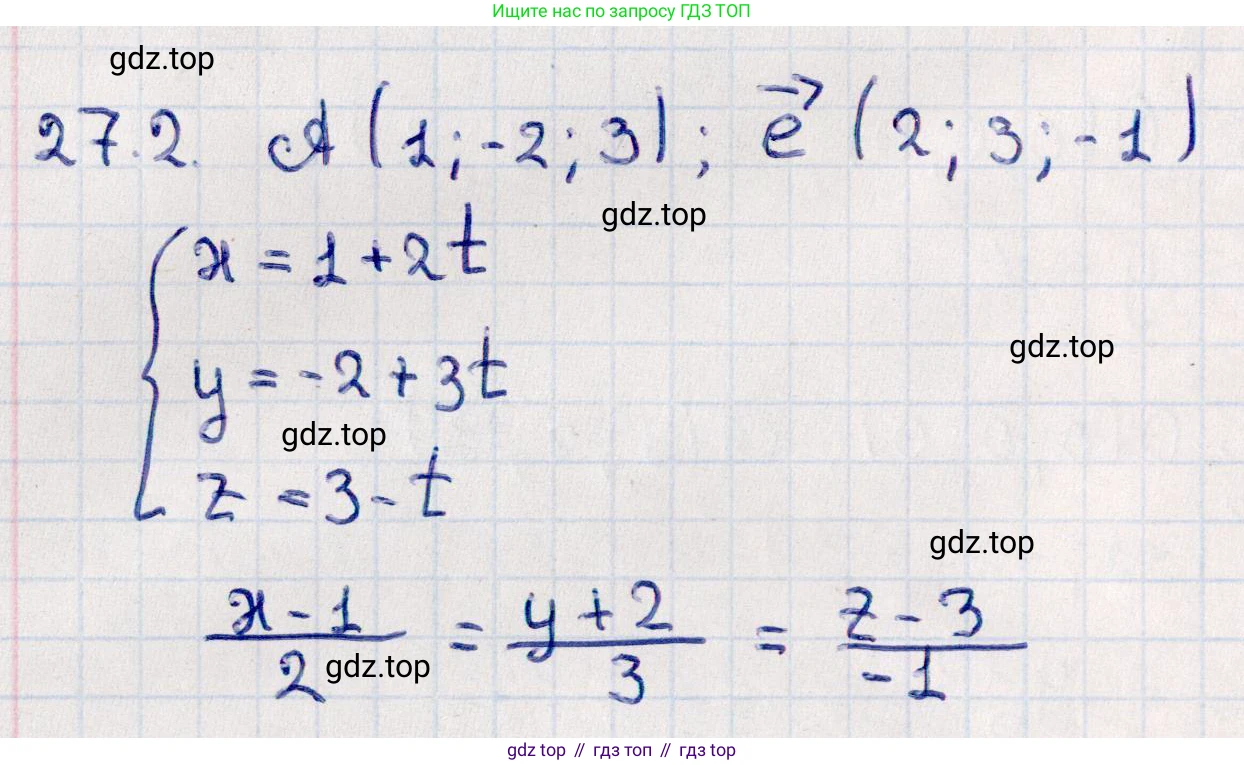 Ищите нас по запросу ГДЗ ТОП
gdz.top
27.2. A (1; -2; 3); e⃗ (2; 3; -1)
gdz.top
{ x = 1 + 2t
gdz.top
y = -2 + 3t
gdz.top
z = 3 - t
gdz.top
(x - 1)/2 = (y + 2)/3 = (z - 3)/-1
gdz.top
gdz top // гдз топ // гдз top